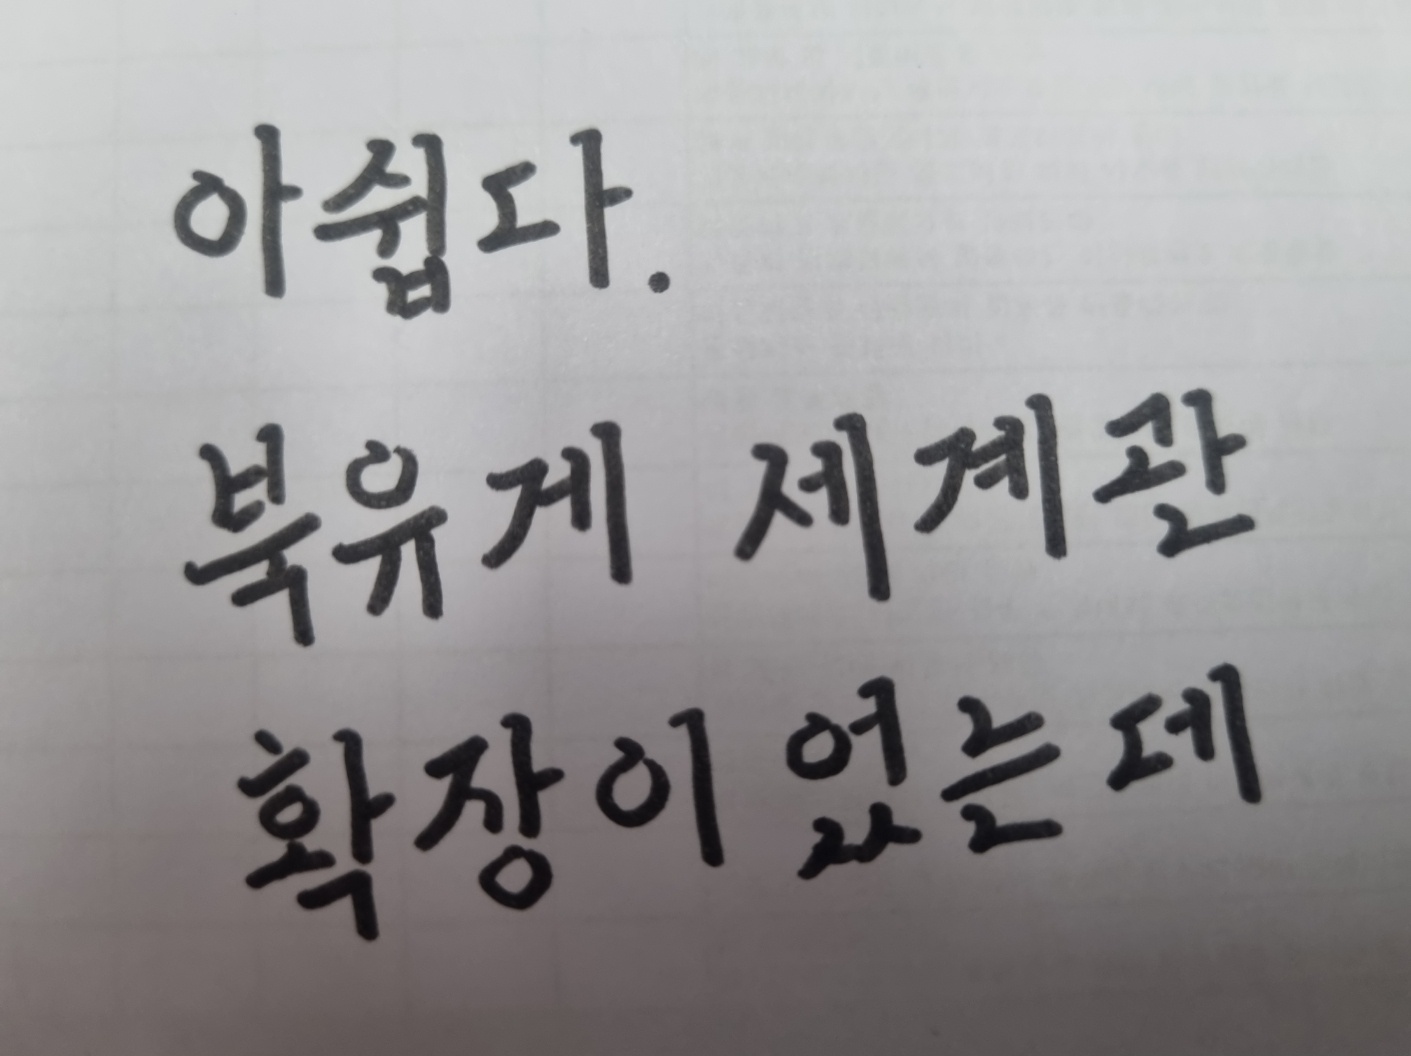 아쉽다.
북유게 세계관
확장이 었는데